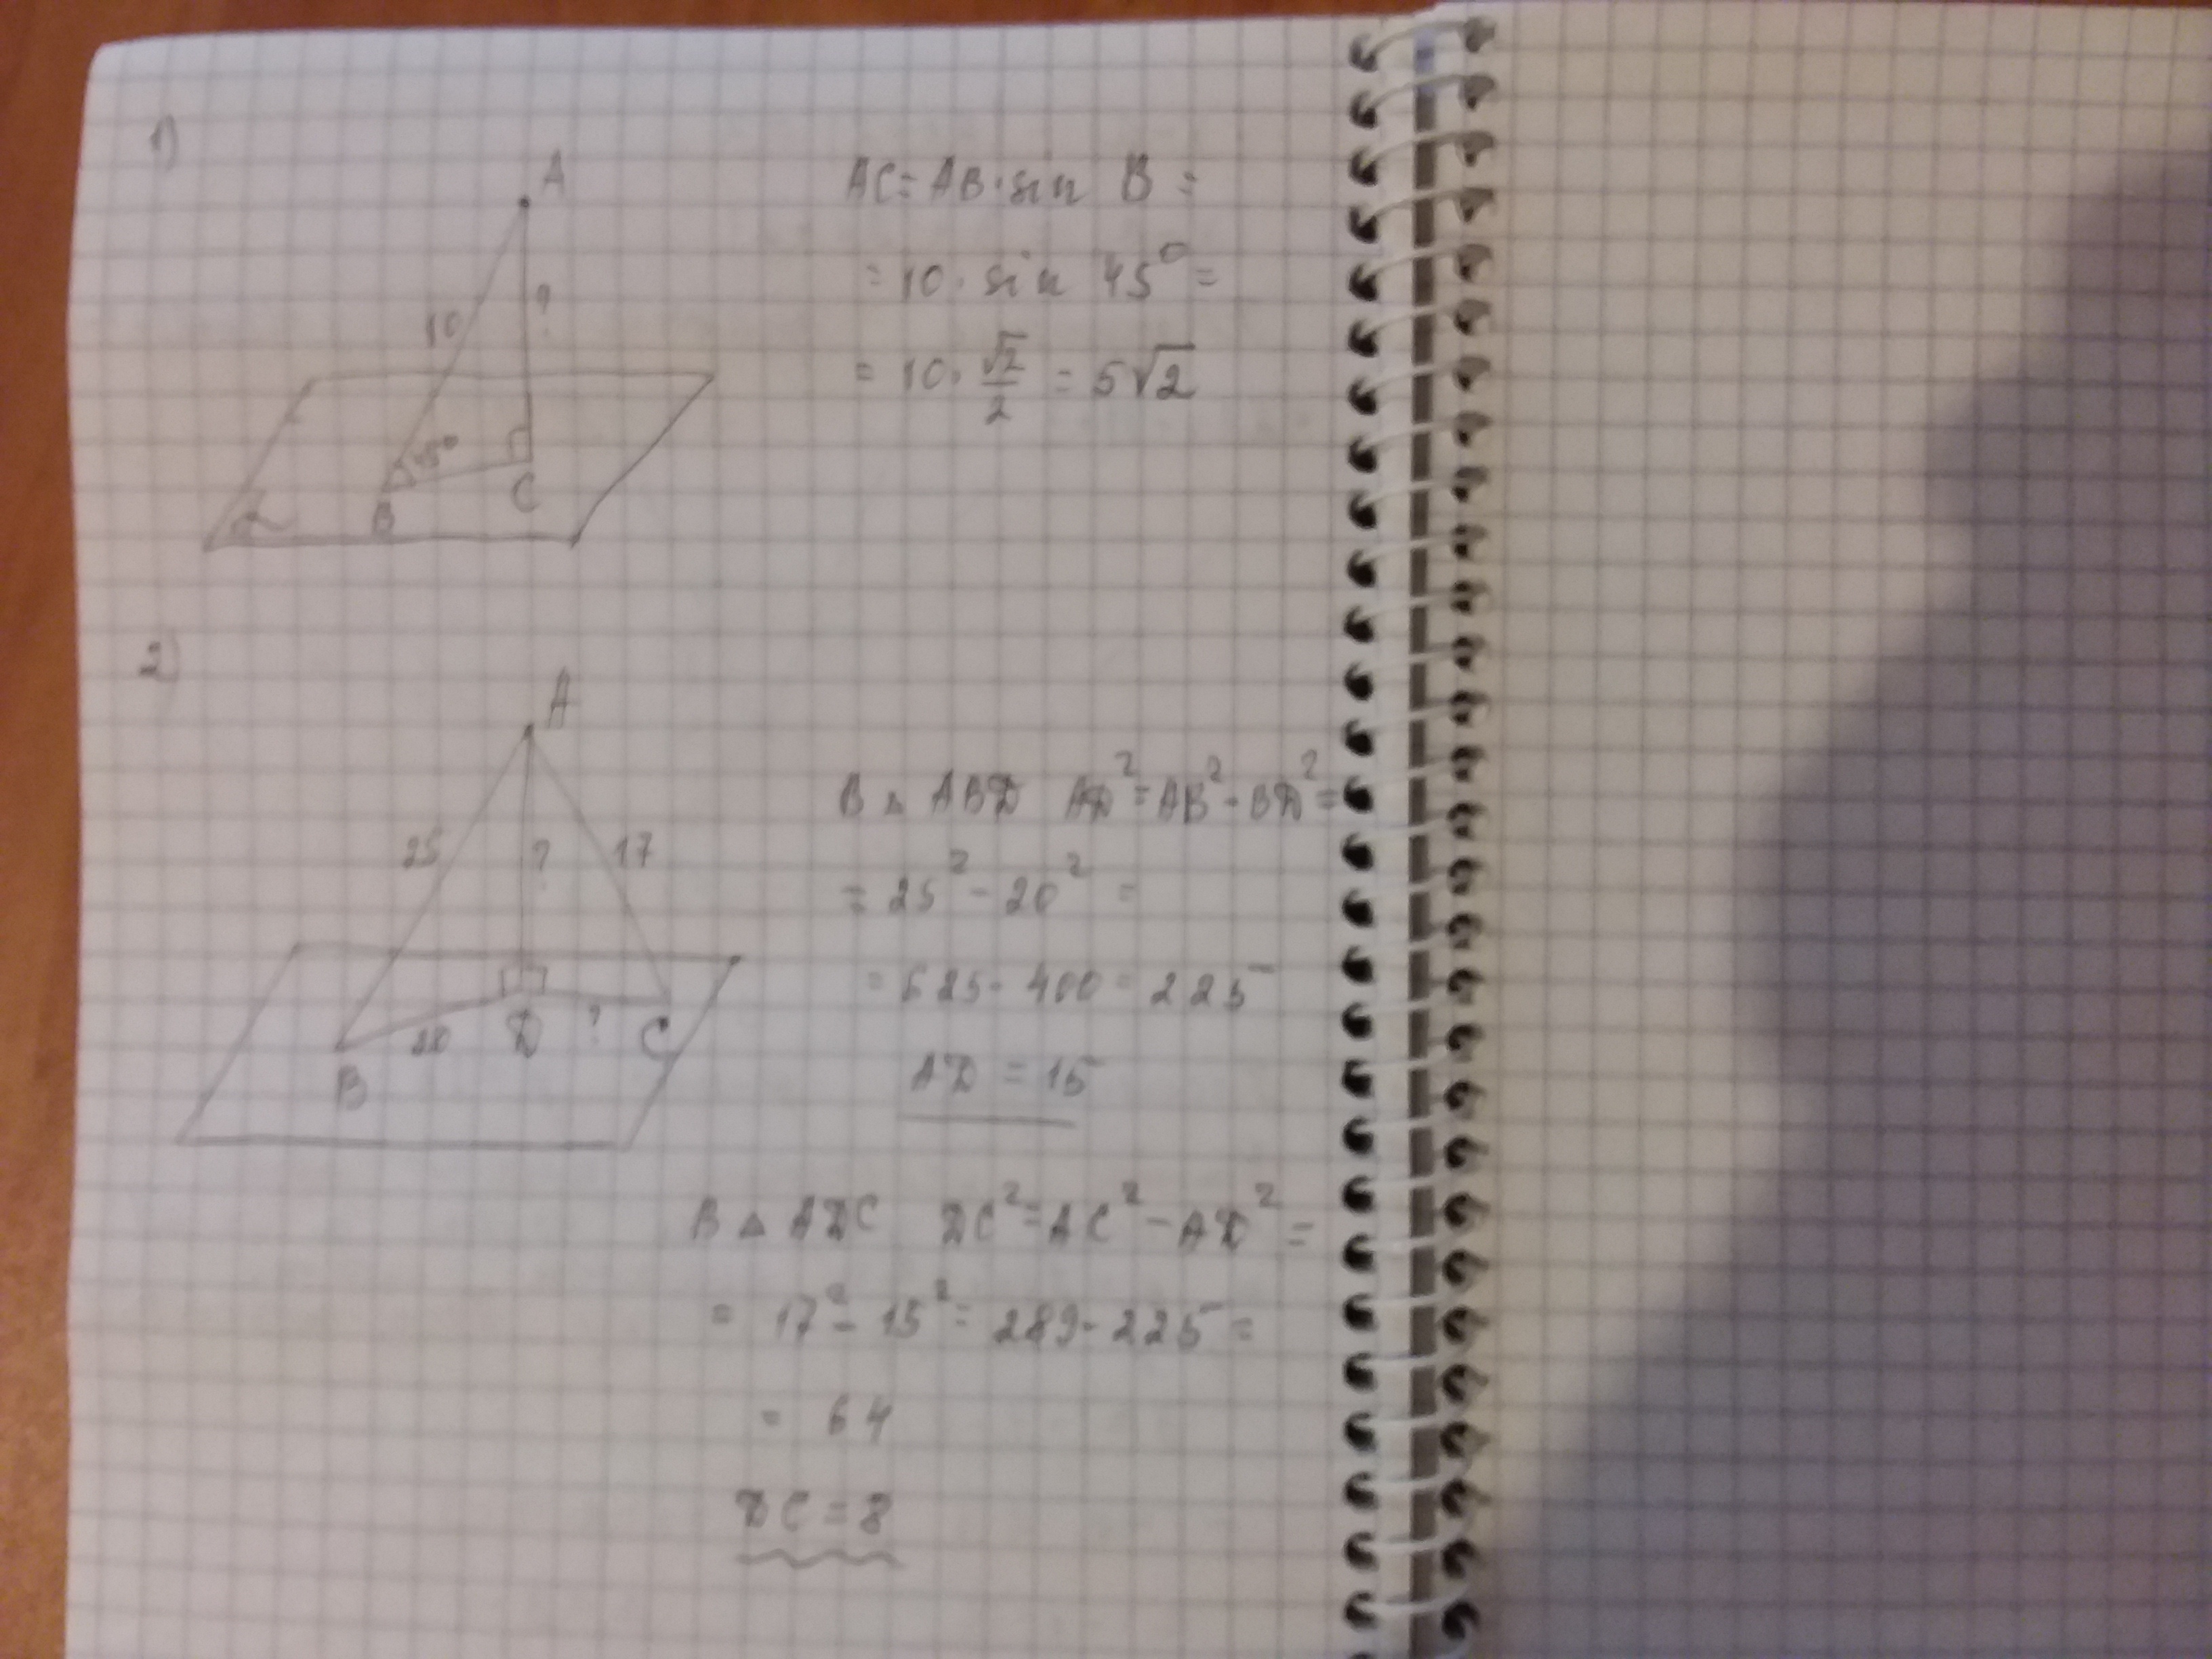 1)
A
10
?
45°
B
C
α
AC = AB · sin B =
= 10 · sin 45° =
= 10 · √2/2 = 5√2
2)
A
25
?
17
20
D
?
C
B
В △ ABD AD² = AB² - BD² =
= 25² - 20² =
= 625 - 400 = 225
AD = 15
В △ ADC DC² = AC² - AD² =
= 17² - 15² = 289 - 225 =
= 64
DC = 8